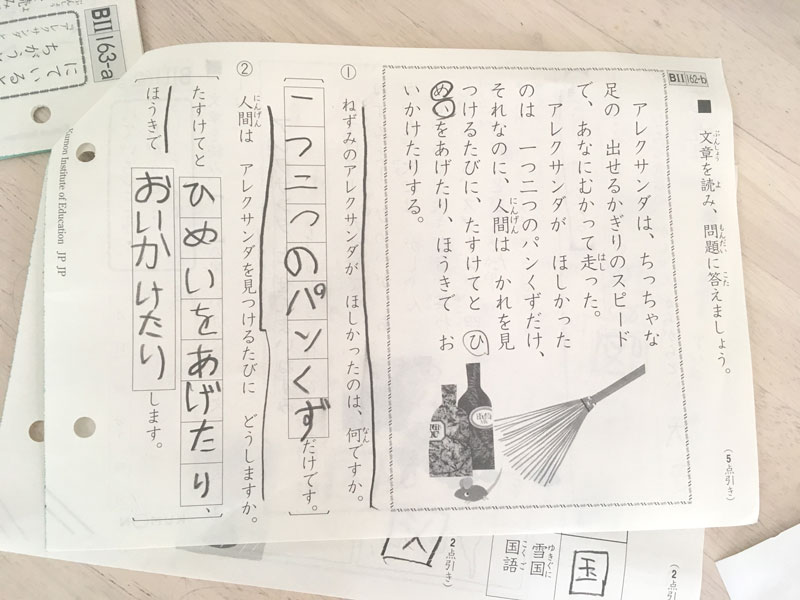 BⅡ 162-b
■ 文章を読み、問題に答えましょう。
(5点引き)
アレクサンダは、ちっちゃな
足の 出せるかぎりのスピード
で、あなにむかって走った。
アレクサンダが ほしかった
のは 一つ二つのパンくずだけ、
それなのに、人間は かれを見
つけるたびに、たすけてと ひ
めいをあげたり、ほうきで お
いかけたりする。
① ねずみのアレクサンダが ほしかったのは、何ですか。
一つ二つのパンくずだけです。
② 人間は アレクサンダを見つけるたびに どうしますか。
たすけてと ひめいをあげたり、
ほうきで おいかけたり します。
Kumon Institute of Education JP JP
BⅡ 163-a
にている
ちがう
アレクサンダ
国
雪国
国語
(2点引き)
2点引き)